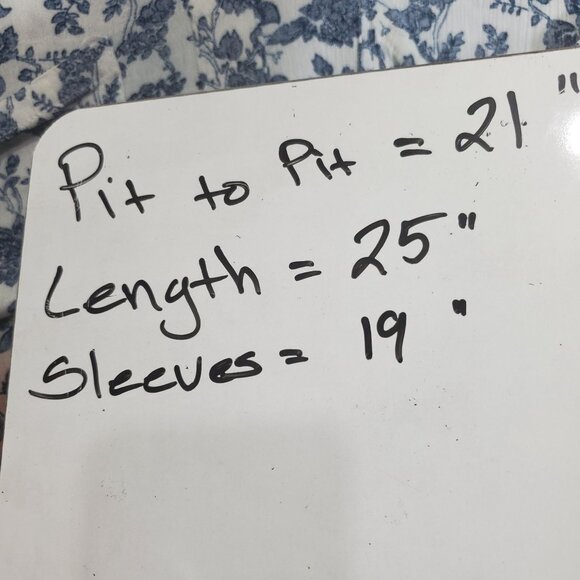 Pit to Pit = 21"
Length = 25"
Sleeves = 19"